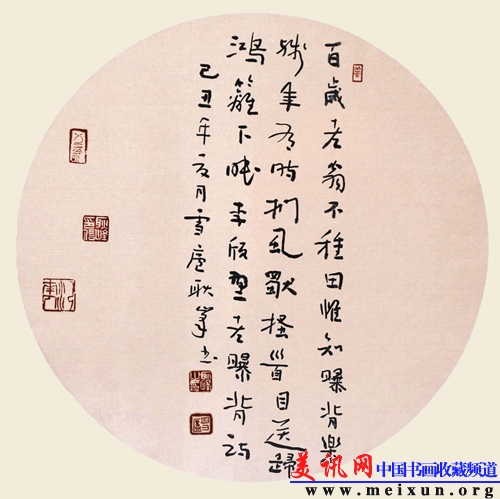 百歲老翁不種田惟知曝背樂
殘年有時捫虱獨搔首目送歸
鴻籬下眠李頎野老曝背詩
己丑年夏月雪廬耿峯书
美讯网 中国书画收藏频道
www.meixun.org